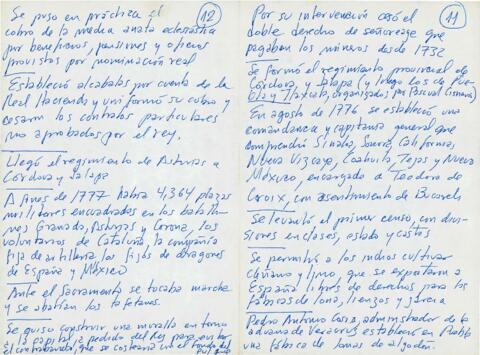 12
Se puso en práctica el
cobro de la media anata eclesiástica
por beneficios, pensiones y oficios
provistos por nominación real
Estableció alcabalas por cuenta de la
Real Hacienda y uniformó su cobro y
cesaron los contratos particulares
no aprobados por el rey.
Llegó el regimiento de Asturias a
Córdova y Jalapa
A fines de 1777 había 4,364 plazas
militares encuadradas en los batallo-
nes Granada, Asturias y Corona, los
voluntarios de Cataluña, la compañía
fija de artillería, los fijos de dragones
de España y México
Ante el Sacramento se tocaba marcha
y se abatían los tafetanes.
Se quiso construir una muralla en torno
a la capital, a pedido del Rey para evitar
el contrabando, que se costearía con el ramo del
pulque
11
Por su intervención cesó el
doble derecho de señoreaje que
pagaban los mineros desde 1732
Se formó el regimiento provincial de
Córdova y Jalapa (y luego los de Pue-
bla y Tlaxcala, organizados por Pascual Cisneros)
En agosto de 1776 se estableció una
comandancia y capitanía general que
comprendía Sinaloa, Sonora, Californias,
Nueva Vizcaya, Coahuila, Tejas y Nuevo
México, encargado a Teodoro de
Croix, con asentimiento de Bucareli
Se levantó el primer censo, con divi-
siones en clases, estado y castas
Se permitió a los indios cultivar
cáñamo y lino, que se exportarían a
España libres de derechos para las
fábricas de lona, lienzos y jarcia
Pedro Antonio Cosío, administrador de la
aduana de Veracruz estableció en Puebla
una fábrica de lonas de algodón.